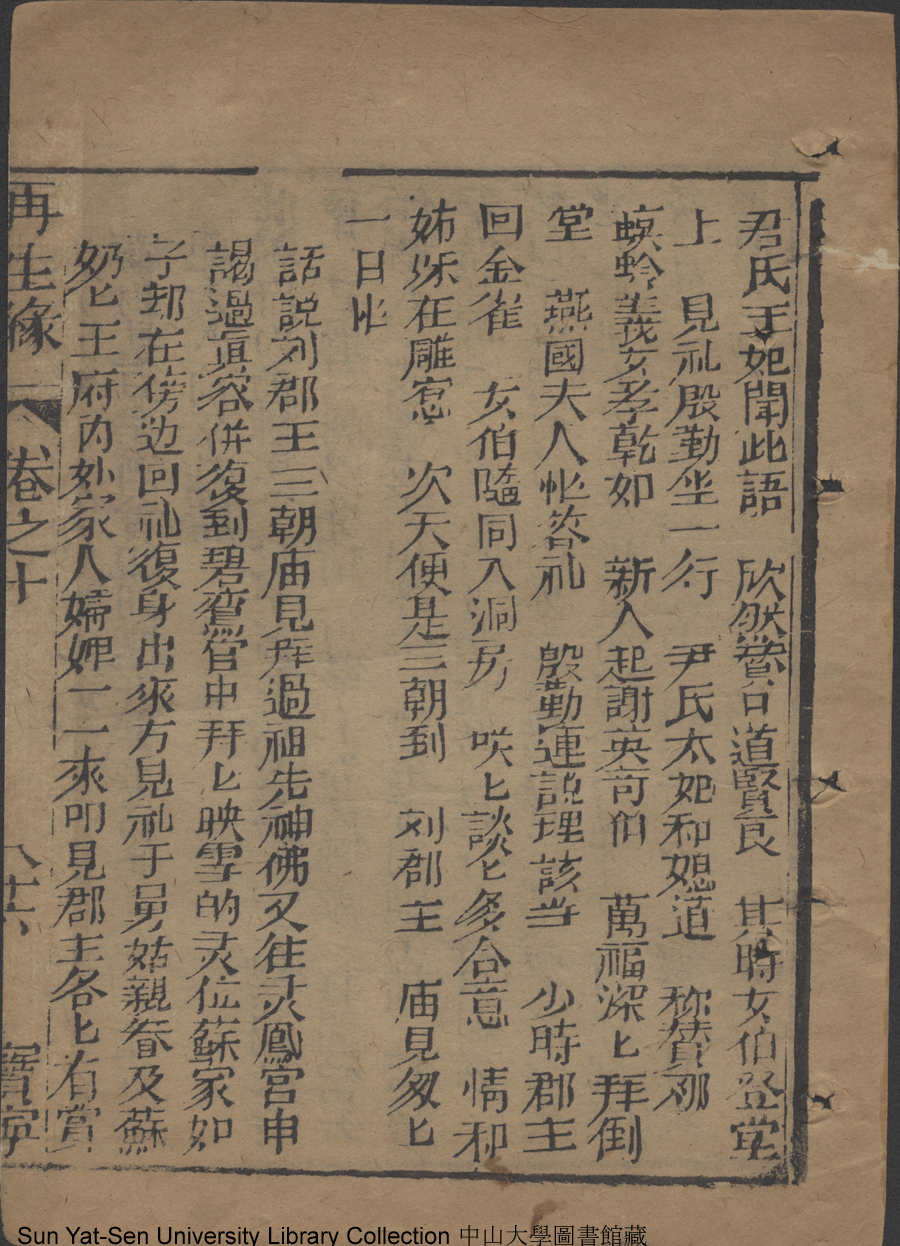 君氏王妃聞此語　欣然賛口道賢良　其時女伯登堂
上　見礼殷勤坐一行　尹氏太妃和媳道　称賛那
螟蛉義女孝乾如　新人起謝英奇伯　萬福深匕拜倒
堂　燕國夫人忙答礼　殷勤連説理該当　少時郡主
回金雀　女伯隨同入洞房　咲匕談匕多合意　情和
姊妹在雕窓　次天便是三朝到　刘郡主　庙見匆匕
一日忙
話說刘郡王三朝庙見拜過祖先神佛又往灵鳳宫中
謁過眞容併復到碧鸞宫中拜匕映雪的灵位蘇家如
子却在傍边回礼復身出來方見礼于舅姑親眷及蘇
奶匕王府内外家人婦婢一一來叩見郡主各匕有賞
再生缘　卷之十　八十六　寳寧
Sun Yat-Sen University Library Collection 中山大學圖書館藏